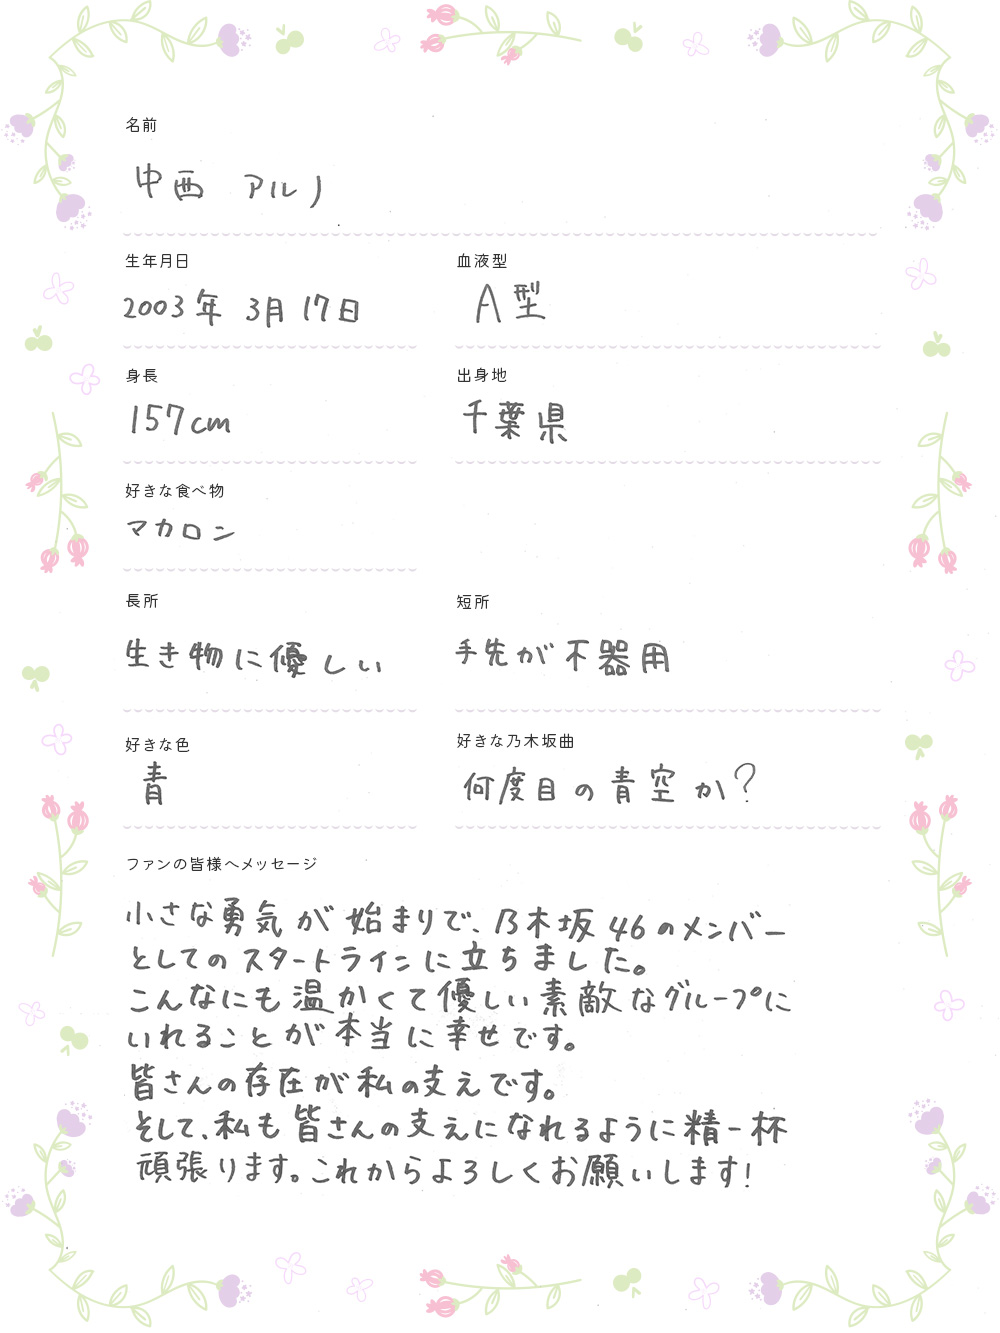 名前
中西 アルノ
生年月日
2003年 3月 17日
血液型
A型
身長
157cm
出身地
千葉県
好きな食べ物
マカロン
長所
生き物に優しい
短所
手先が不器用
好きな色
青
好きな乃木坂曲
何度目の青空か?
ファンの皆様へメッセージ
小さな勇気が始まりで、乃木坂46のメンバー
としてのスタートラインに立ちました。
こんなにも温かくて優しい素敵なグループに
いれることが本当に幸せです。
皆さんの存在が私の支えです。
そして、私も皆さんの支えになれるように精一杯
頑張ります。これからよろしくお願いします!